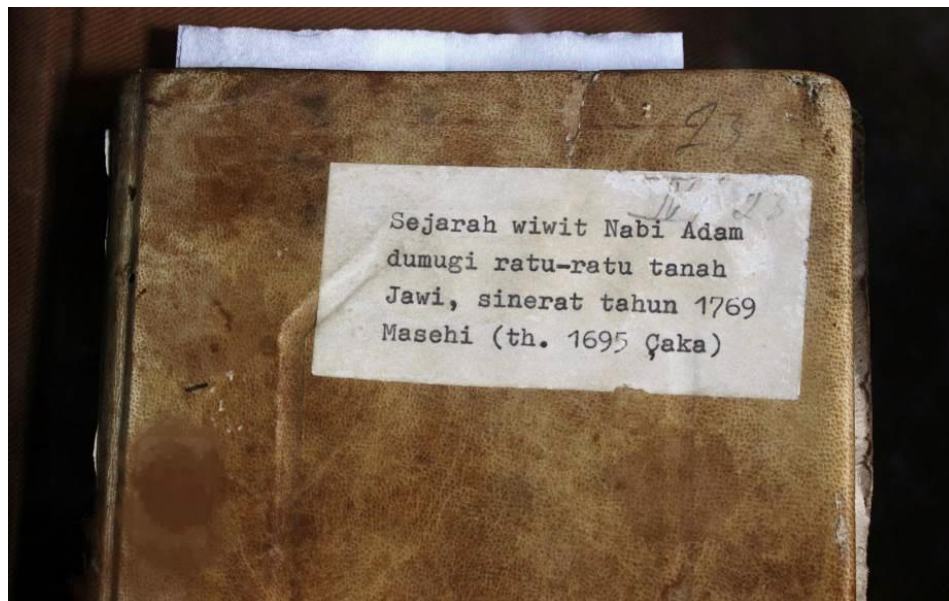 23
IV, 23
Sejarah wiwit Nabi Adam
dumugi ratu-ratu tanah
Jawi, sinerat tahun 1769
Masehi (th. 1695 Çaka)